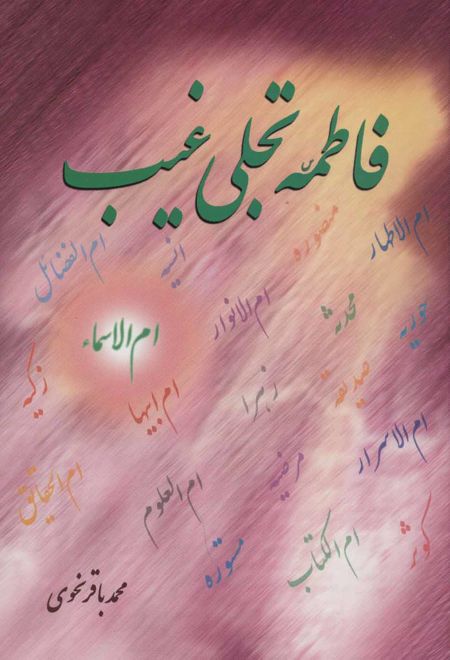 فاطمهٔ تجلی غیب
ام الاطهار
منصوره
انسیه
ام الفضائل
حوریه
محدثه
ام الانوار
ام الاسماء
صدیقه
زهرا
ام ابیها
زکیه
ام الاسرار
مرضیه
ام العلوم
ام الحقایق
کوثر
ام الکتاب
مستوره
محمد باقر نحوی